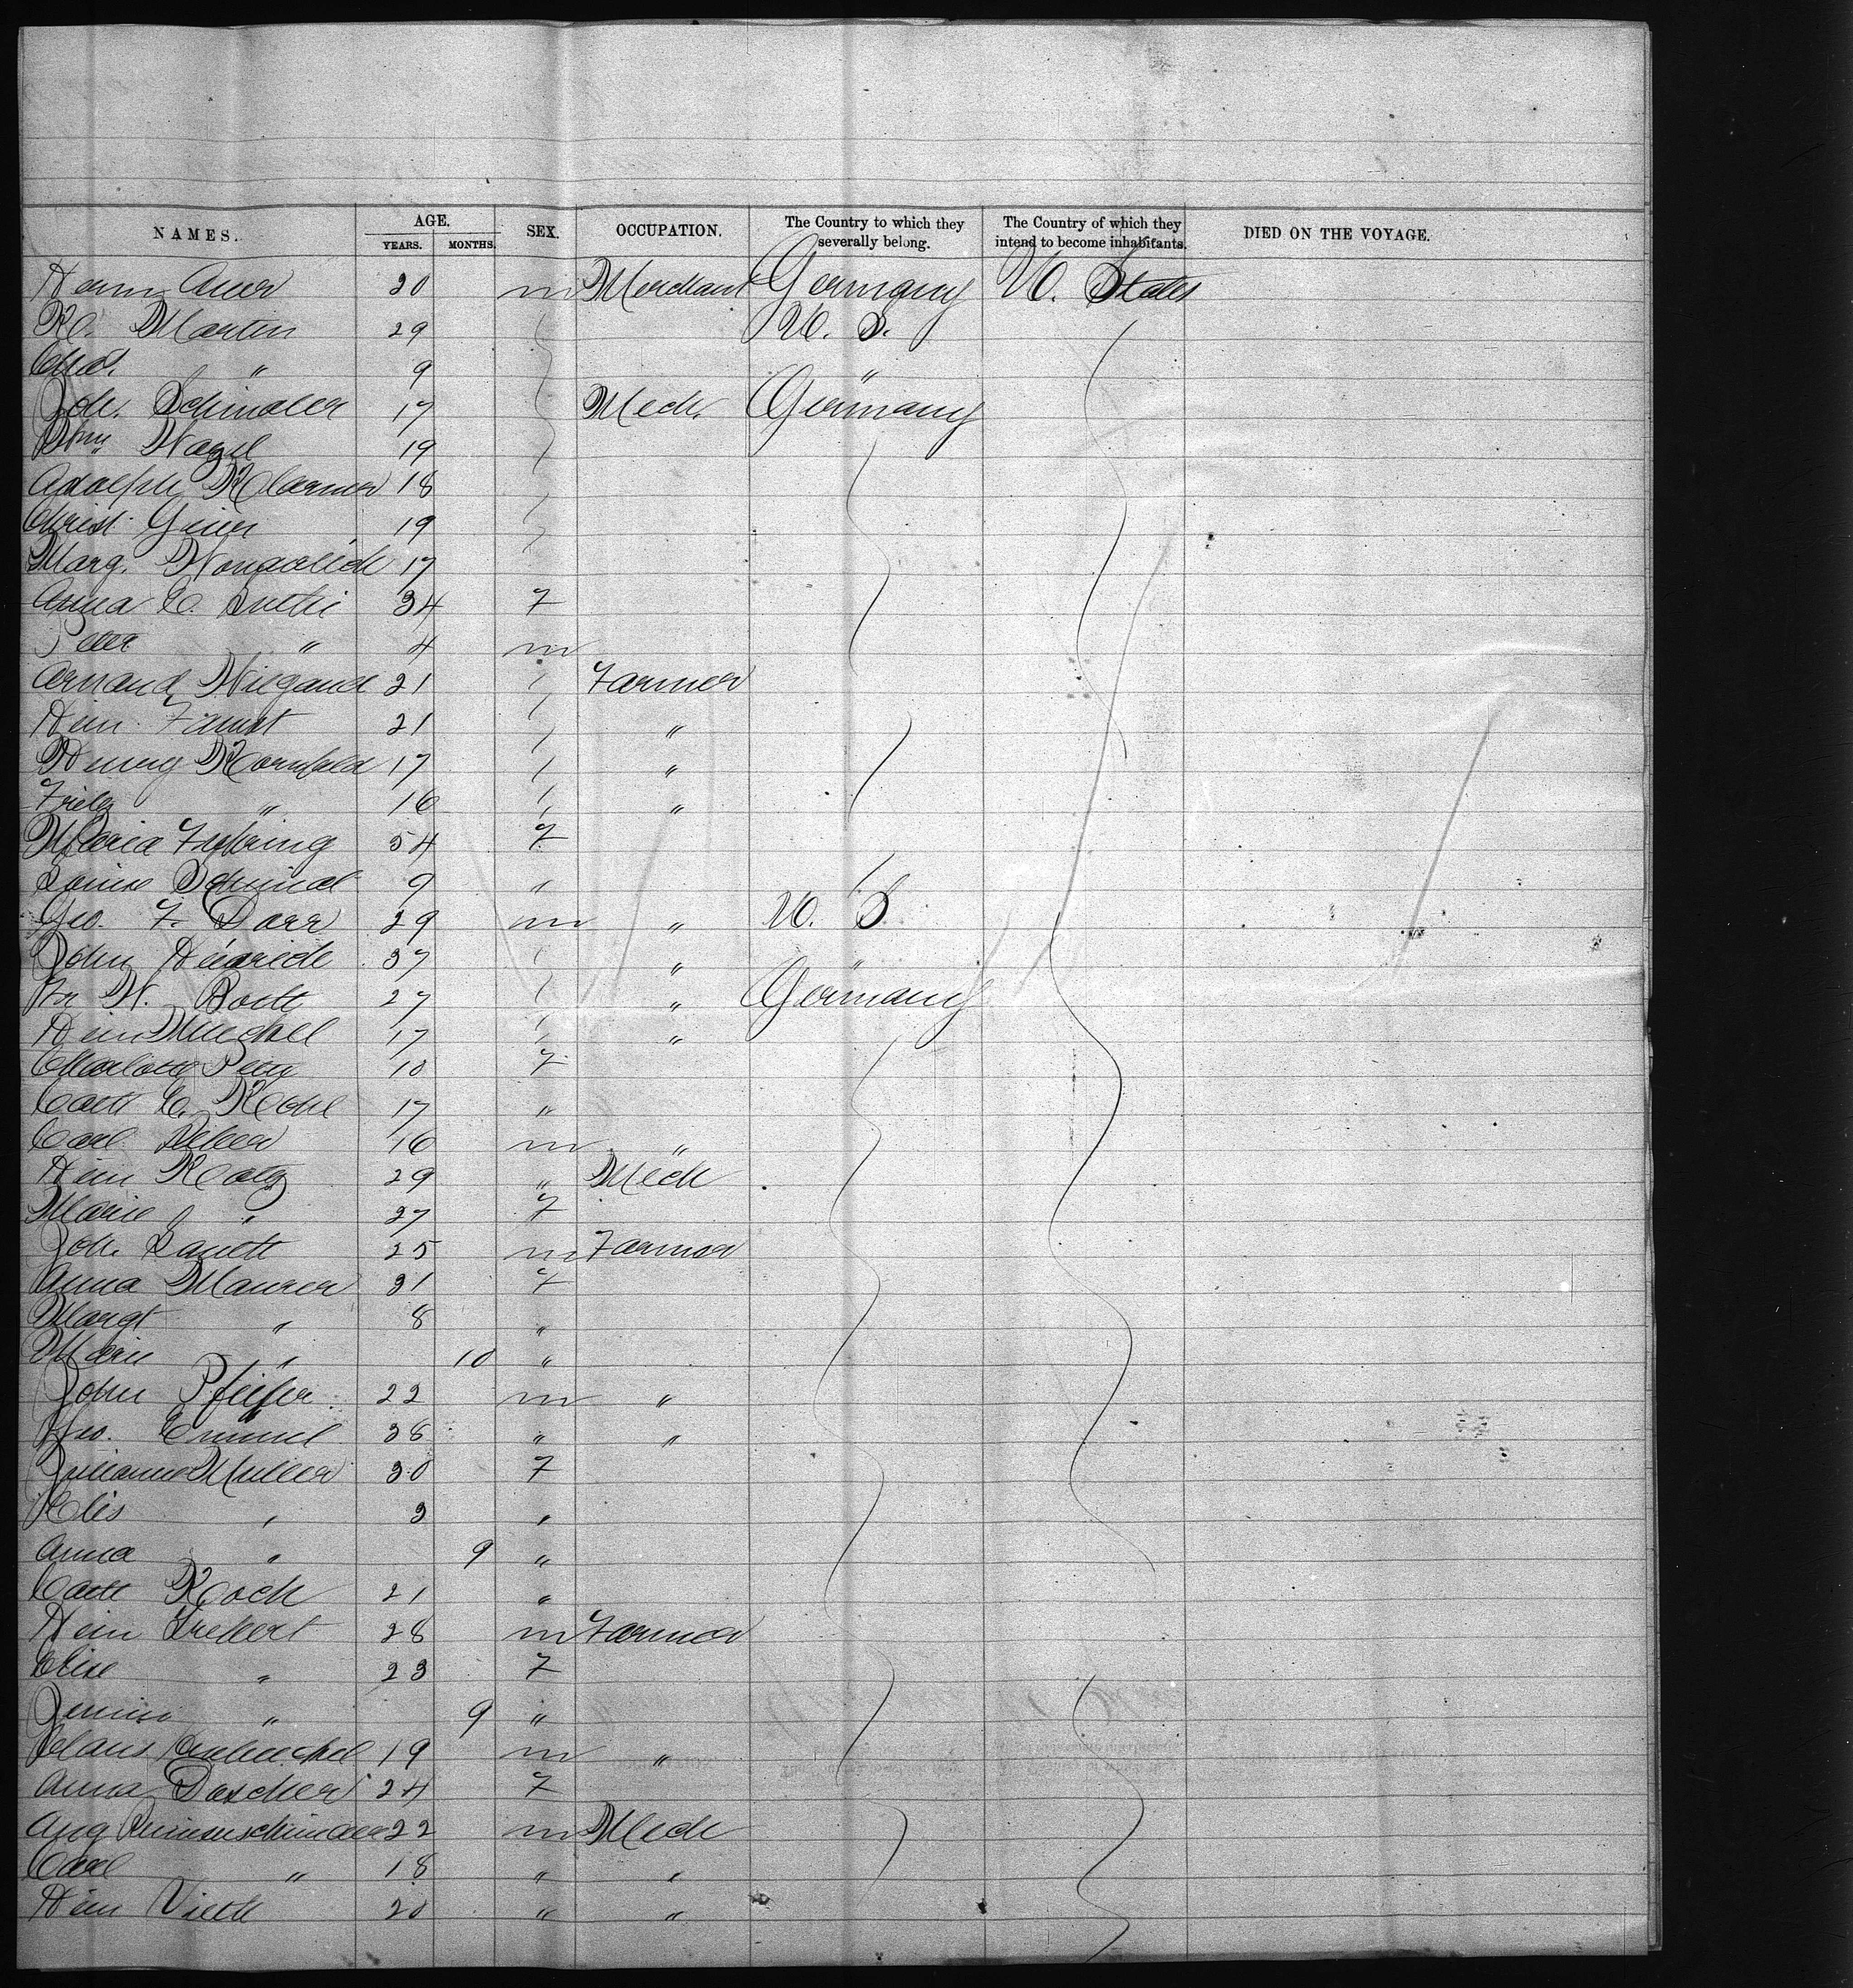 NAMES. AGE. YEARS. MONTHS. SEX. OCCUPATION. The Country to which they severally belong. The Country of which they intend to become inhabitants. DIED ON THE VOYAGE.
Herm Auer 20 m Merchant Germany U. States
Martin 29 U. S.
Chas. " 9 "
Joh. Schindler 17 Mech. Germany
Wm Nagel 19
Adolph Klarmer 18
Christ. Geier 19
Marg. 17
Anna C. 34 F
Peter " 4 m
Armand Wiegand 21 Farmer
Hein Faust 21 "
Henry Kornfeld 17 "
Fritz " 16 "
Maria 54 F
Louise Schmid 9 "
Geo. F. Darr 29 m " U. S.
John Heinrich 37 " "
W. Both 27 " Germany
Hein Muchel 17 "
10 F
Cath C. Kohl 17 "
Carl Weber 16 m "
Hein Kolz 29 " Mech
Marie " 27 F
Joh. Lauth 25 m Farmer
Anna Maurer 31 F
Margt " 8 "
Marie " 10 "
John Pfeifer 22 m "
Geo. Emmel 38 " "
Julianne Muller 30 F
Elis " 3 "
Anna " 9 "
Cath Koch 21 "
Hein Trebert 28 m Farmer
Elise " 23 F
" 9 "
Claus 19 m "
Anna Doscher 24 F
Aug Riemenschneider 22 m Mech
Carl " 18 " "
Hein Vieth 20 " "